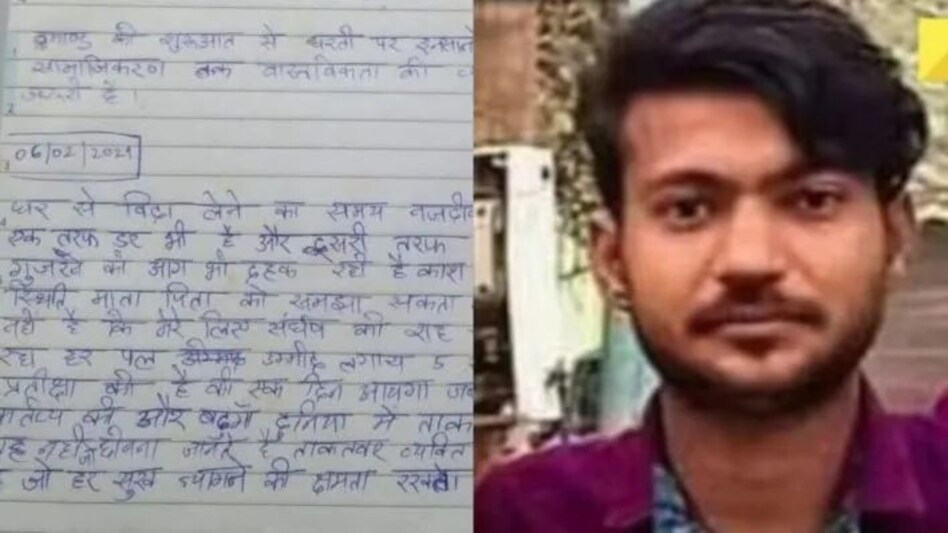 की शुरुआत से धरती पर इन्सानो
सामाजिकरण तक वास्तविकता की
जरुरी है।
06/02/2021
घर से विदा लेने का समय नजदीक
एक तरफ डर भी है और दूसरी तरफ
गुजरने की आग भी दहक रही है काश
स्थिति माता पिता को समझा सकता
नही है कि मेरे लिए संर्घष की राह
रहा हर पल उम्मीद लगाय 5
प्रतीक्षा की है की एक दिन आयगा जब
की और बढूँगा दुनिया में
नहीं जो छीनना जानते है ताकतवर व्यक्ति
जो हर सुख त्यागने की क्षमता रखता